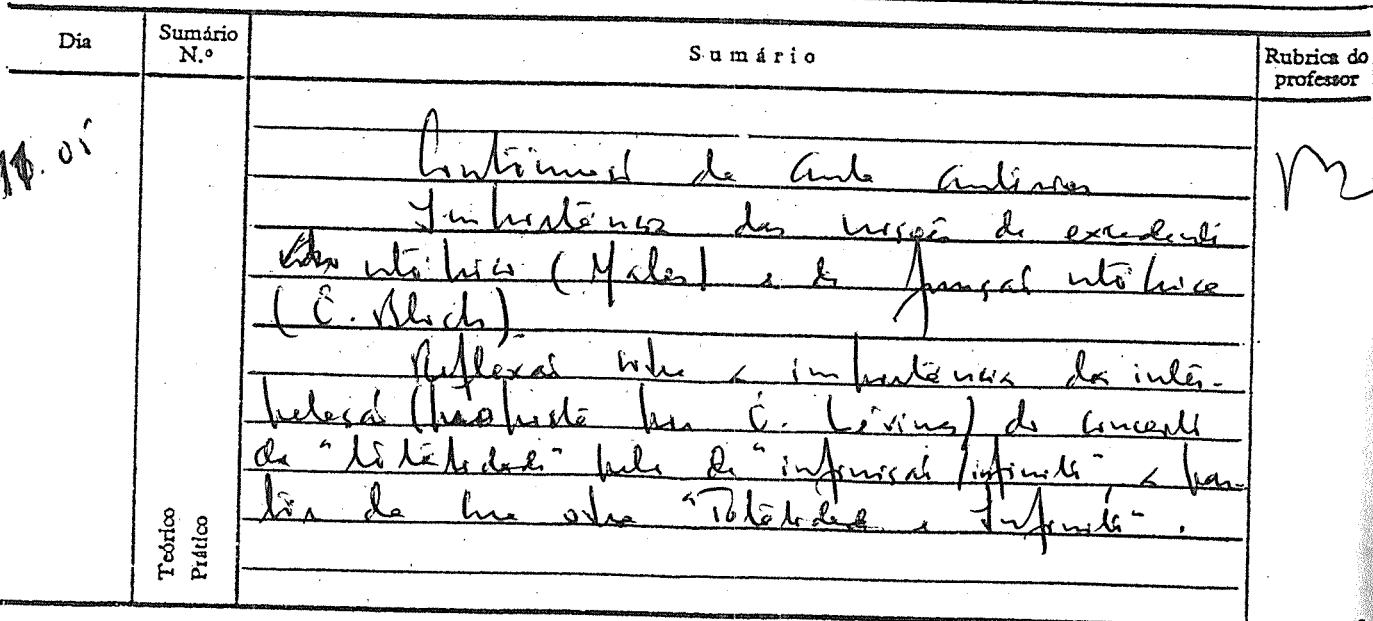 Dia
Sumário N.º
Sumário
Rubrica do professor
Continuação da aula anterior
Importância das noções de excedente
utópico (Matos) e de função utópica
(E. Bloch)
Reflexão sobre a importância da inter-
pelação (proposta por E. Lévinas) do conceito
de "totalidade" pelo de "infinição/infinito", a par-
tir da sua obra "Totalidade e Infinito".
Teórico
Prático